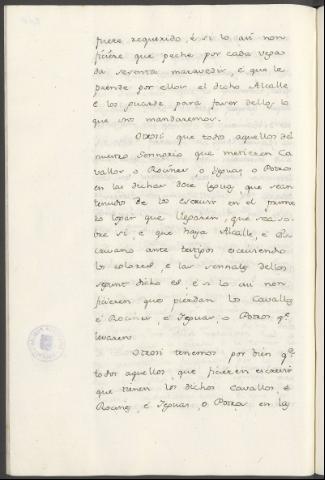 fuere requerido, é si lo asi non
ficiére que peche por cada vega
da sesenta maravedis, é que le
prende por ellos el dicho Alcalle
é los guarde para facer dello, lo
que nos mandaremos.
Otrosi que todos aquellos del
nuestro Sennorio que metieren Ca
vallos, o Rocines, o Yeguas, o Potros
en las dichas doce leguas, que sean
tenudos de los escrivir en el prime
ro logar que llegaren, que sea so
bre si, é que haya Alcalle, é Es
crivano ante testigos escriviendo
los colores, é las sennales dellos
segunt dicho es, é si lo asi non
ficieren que pierdan los Cavallos
é Rocines, é Yeguas, o Potros q.e
levaren.
Otrosi tenemos por bien q.e
todos aquellos que ficieren escrivir
que tienen los dichos Cavallos, é
Rocines, é Yeguas, o Potros en las